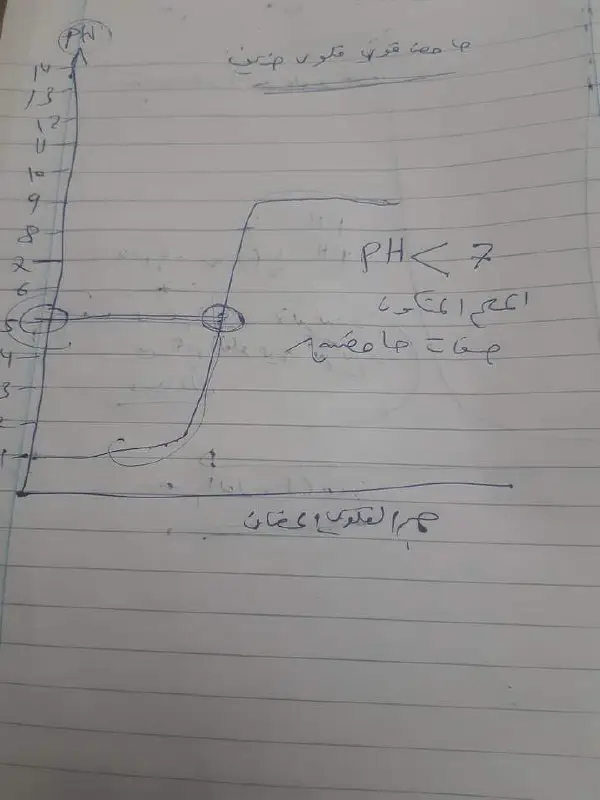 PH
حامض قوي قلوي ضعيف
14
13
12
11
10
9
8
7
6
5
4
3
2
1
PH < 7
الملح المتكون
صفات حامضية
حجم القلوي المضاف